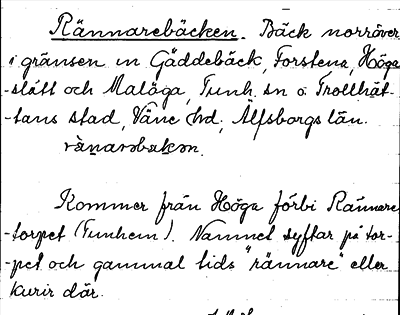 Rännarebäcken. Bäck norröver
i gränsen m Gäddebäck, Forstena, Höga
-slätt och Malöga, Tunh. sn o. Trollhät-
-tans stad, Väne hd, Älfsborgs län.
rànarəbækən.
Kommer från Höga förbi Rännare
-torpet (Tunhem). Namnet syftar på tor-
-pet och gammal tids "rännare" eller
kurir där.